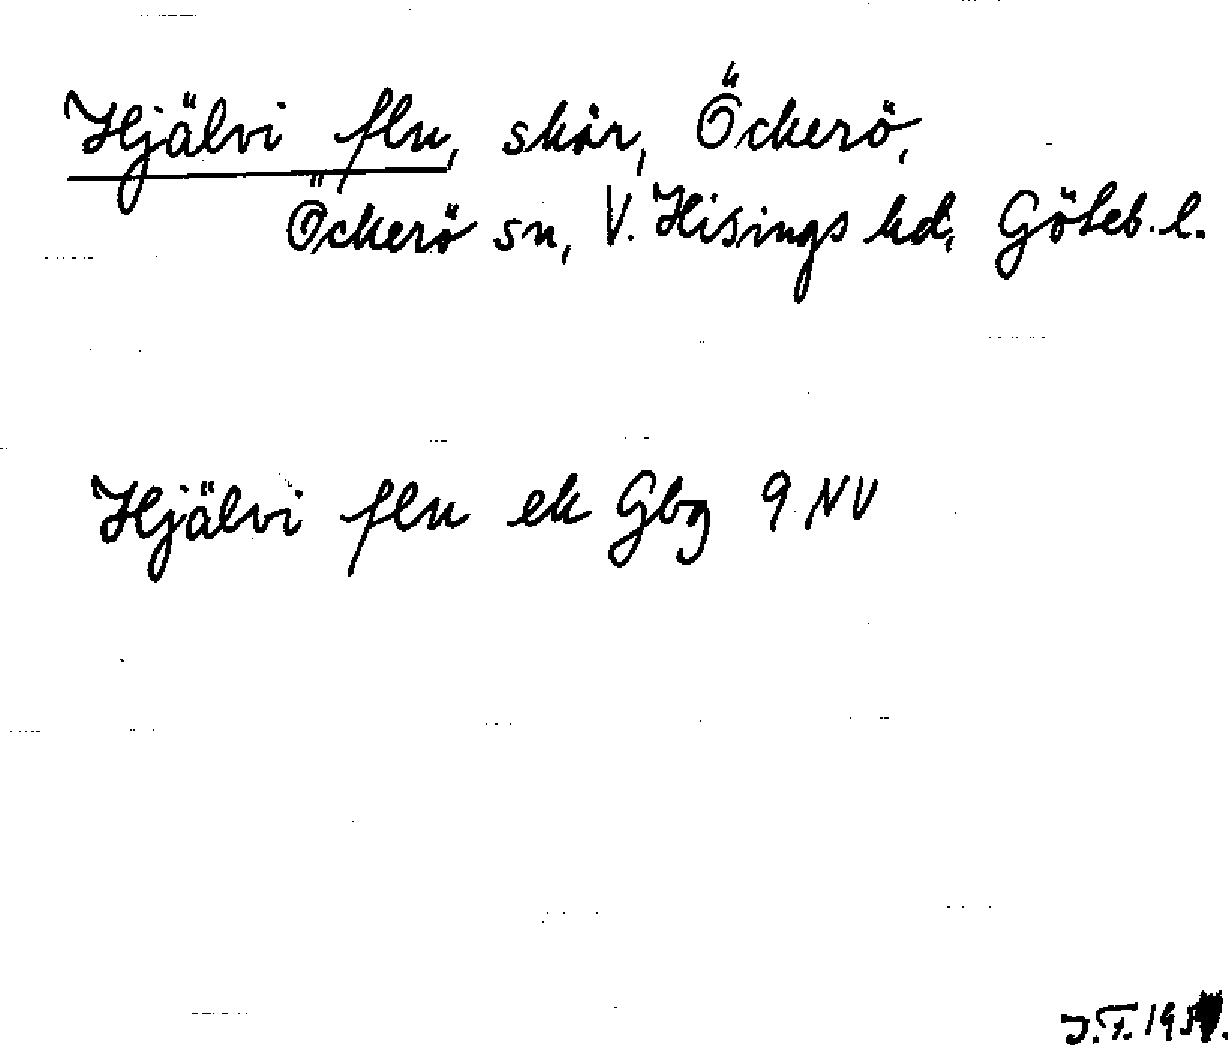 Hjälvi flu, skär, Öckerö,
Öckerö sn, V. Hisings hd, Göteb. l.
Hjälvi flu ek Gbg 9 NV